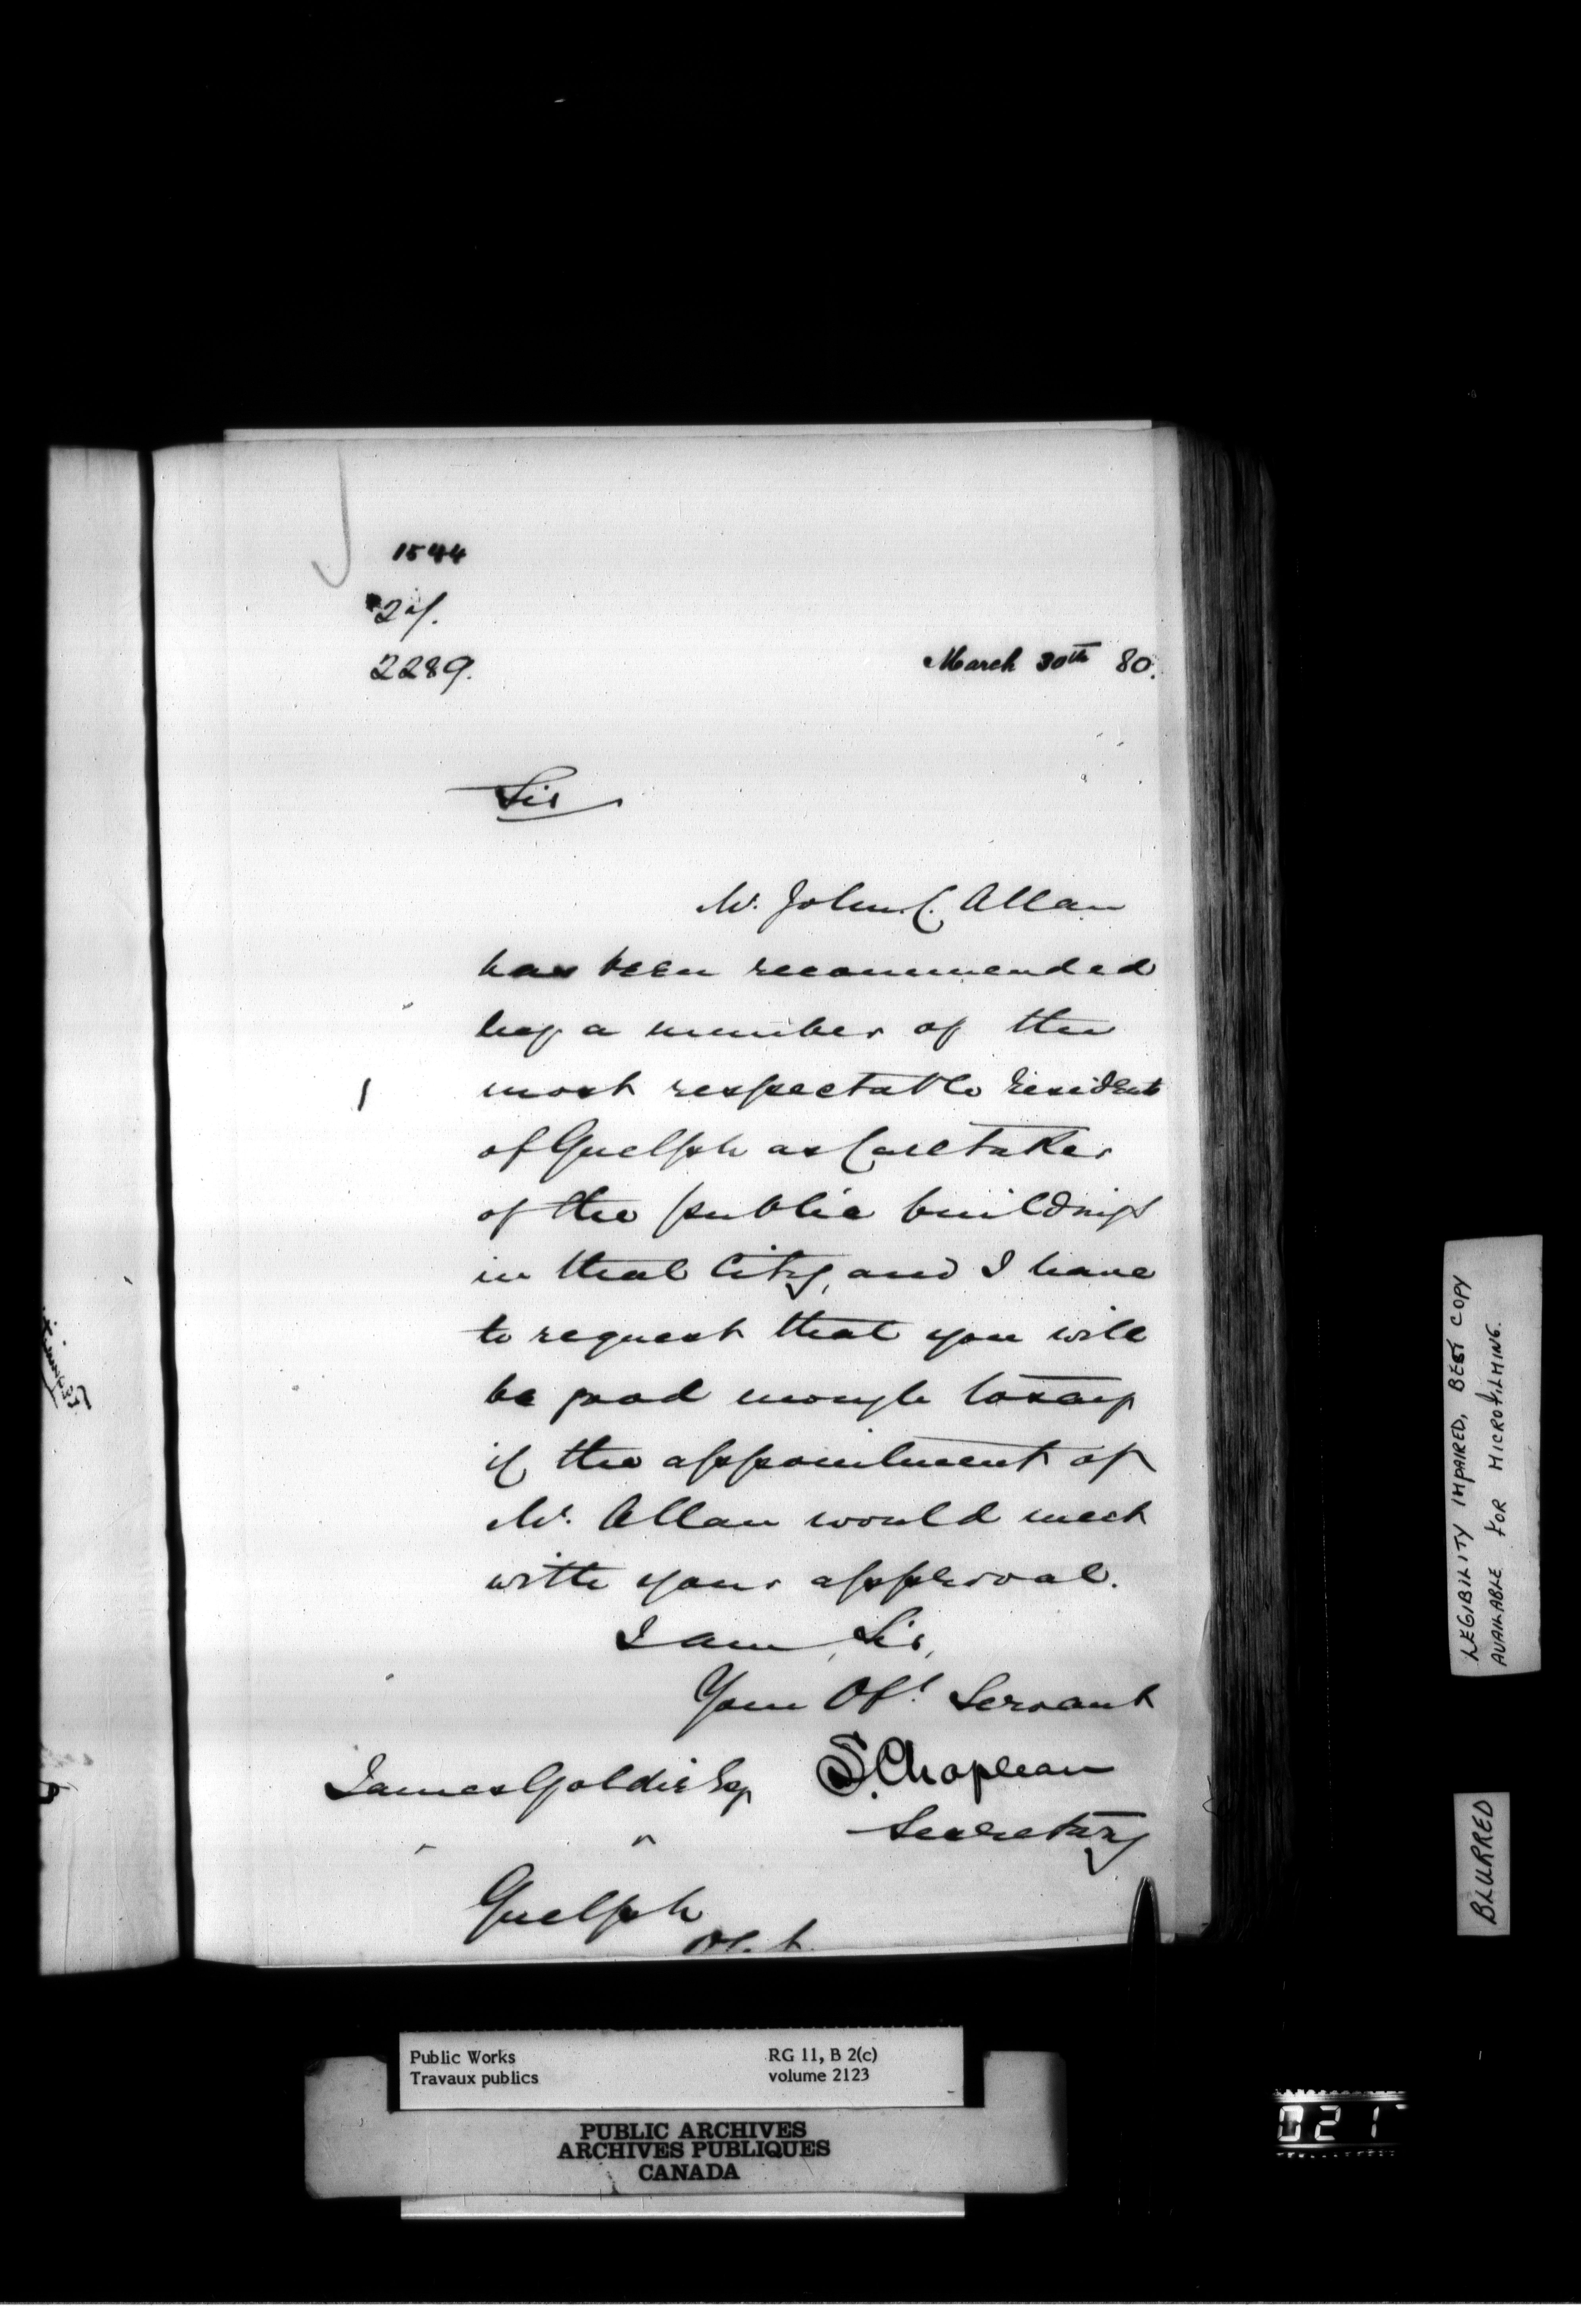 1544
2289.
March 30th 80.
Sir
Mr. John C. Allan
has been recommended
by a number of the
most respectable residents
of Guelph as Caretaker
of the public buildings
in that City, and I have
to request that you will
be good enough to say
if the appointment of
Mr. Allan would meet
with your approval.
I am, Sir,
Your Obt. Servant
S. Chapleau
James Goldie Esq
Secretary
" "
Guelph
Ont.
LEGIBILITY IMPAIRED, BEST COPY
AVAILABLE FOR MICROFILMING.
BLURRED
Public Works RG 11, B 2(c)
Travaux publics volume 2123
PUBLIC ARCHIVES
ARCHIVES PUBLIQUES
CANADA
021